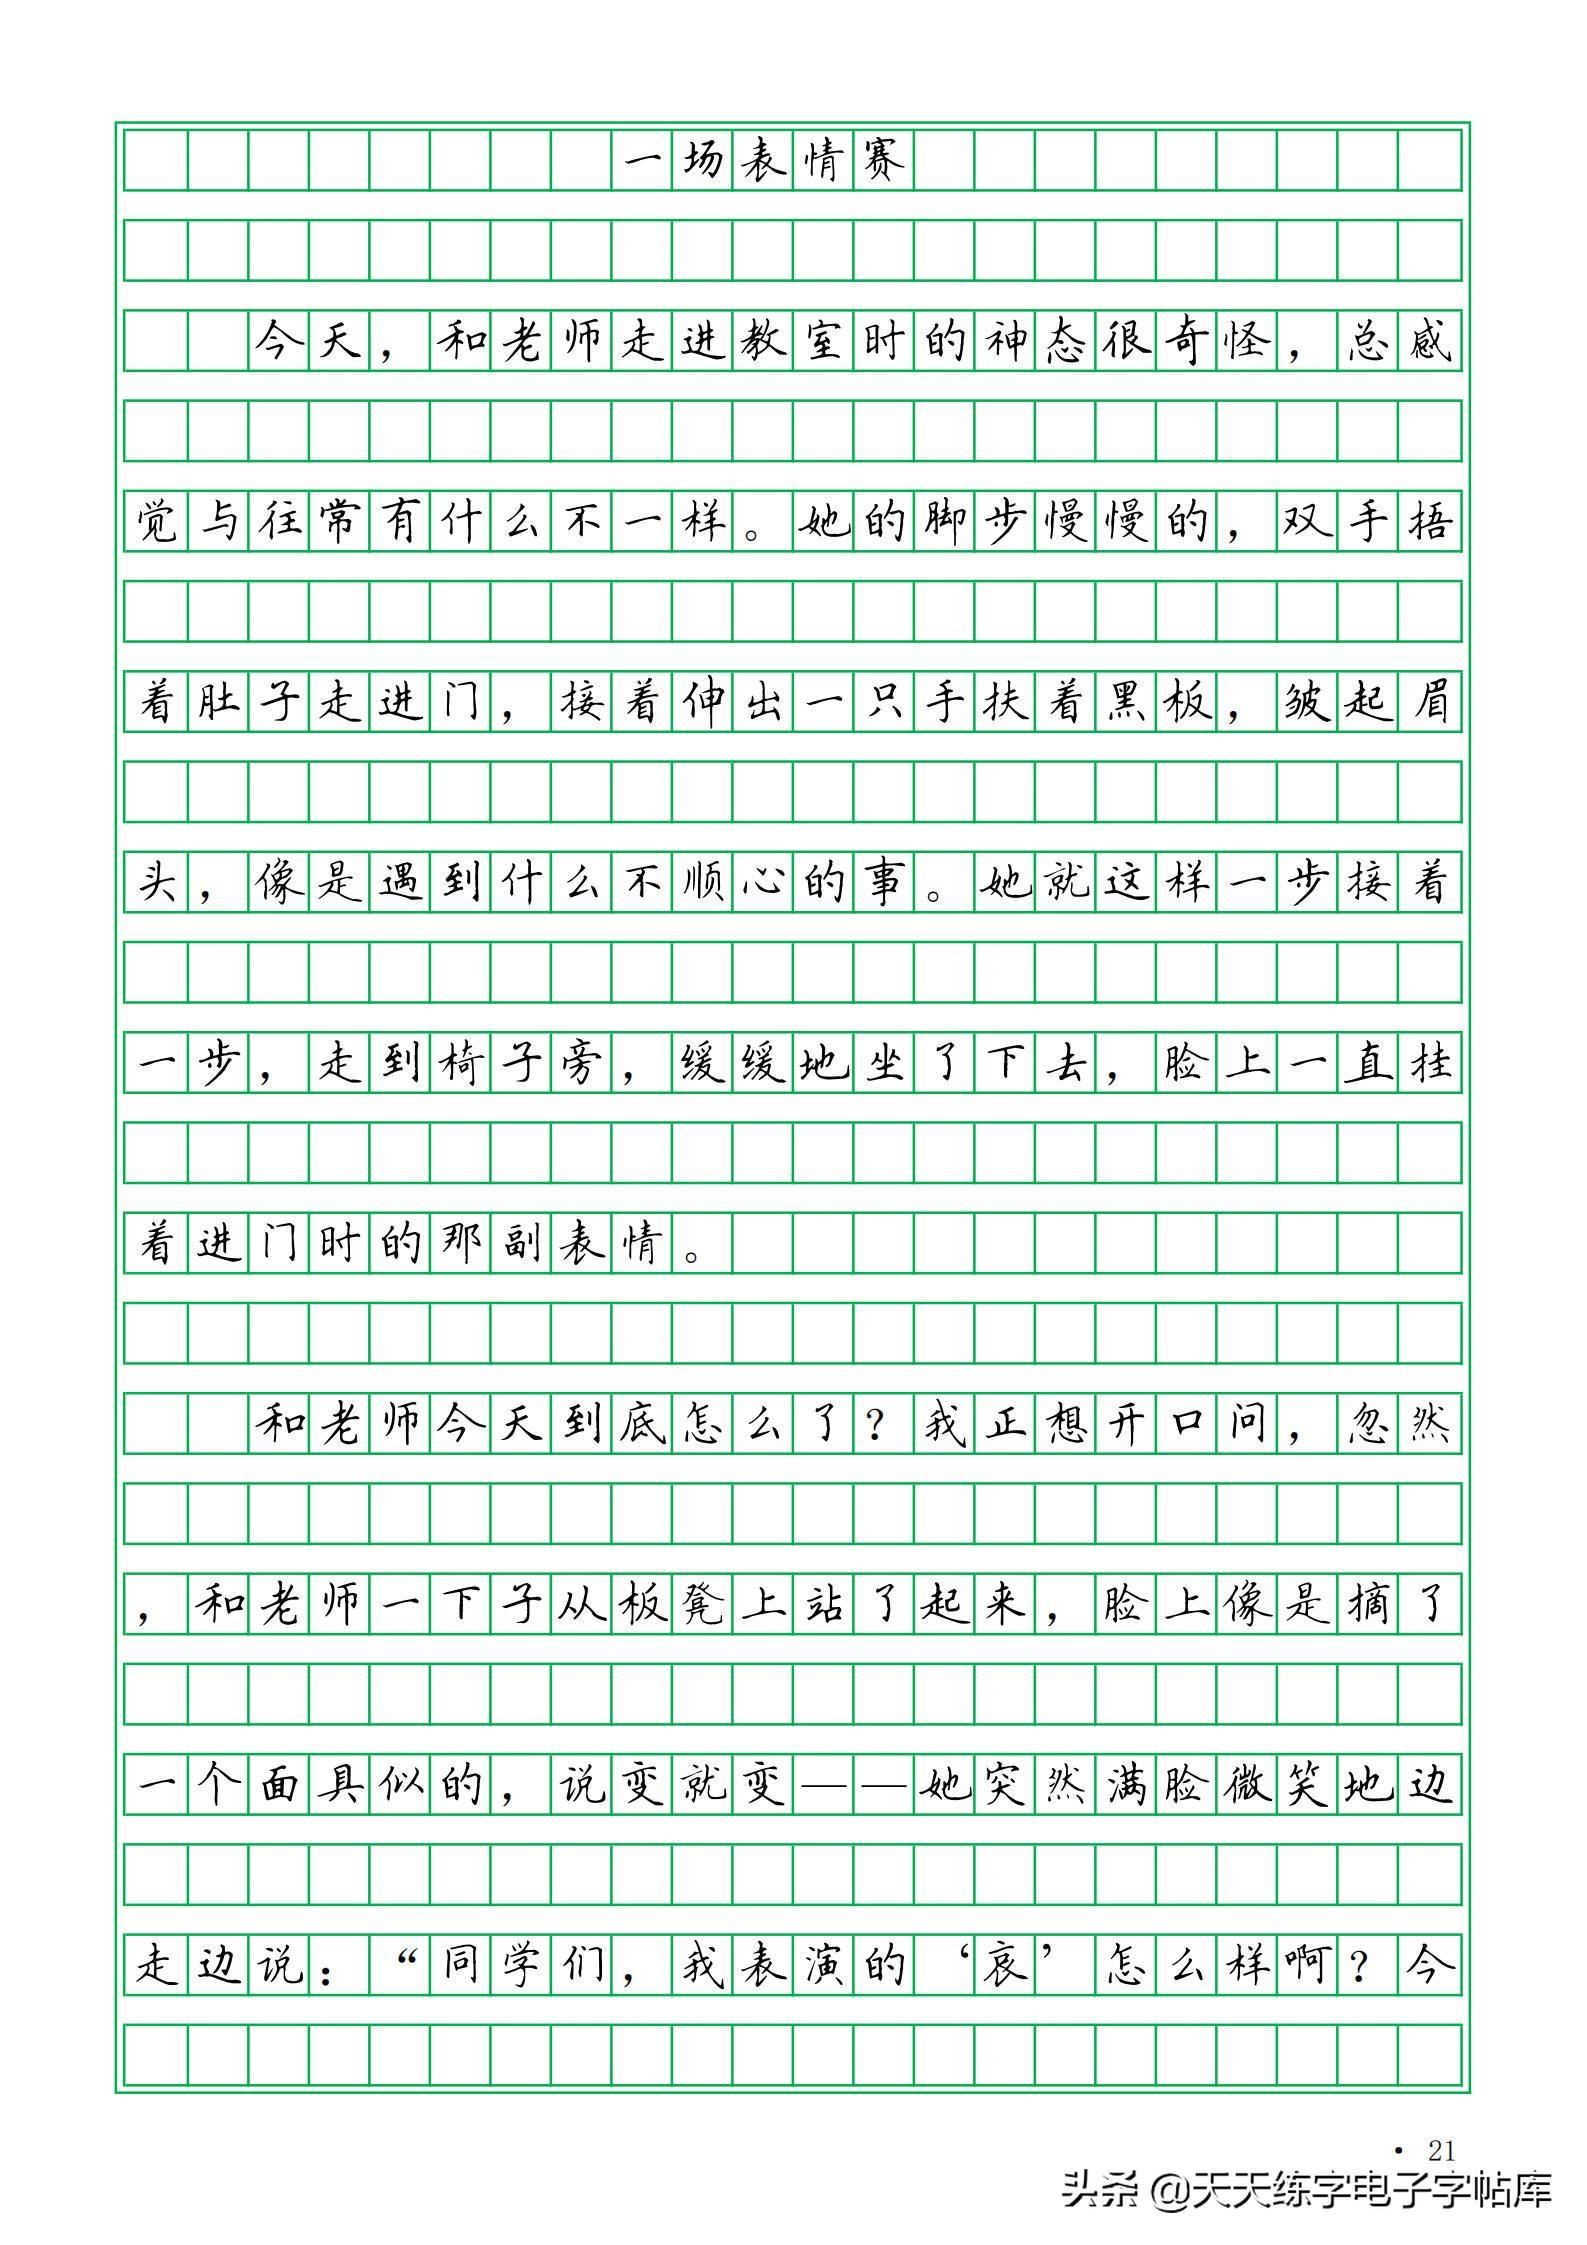 一场表情赛
今天，和老师走进教室时的神态很奇怪，总感
觉与往常有什么不一样。她的脚步慢慢的，双手捂
着肚子走进门，接着伸出一只手扶着黑板，皱起眉
头，像是遇到什么不顺心的事。她就这样一步接着
一步，走到椅子旁，缓缓地坐了下去，脸上一直挂
着进门时的那副表情。
和老师今天到底怎么了？我正想开口问，忽然
，和老师一下子从板凳上站了起来，脸上像是摘了
一个面具似的，说变就变——她突然满脸微笑地边
走边说：“同学们，我表演的‘哀’怎么样啊？今
· 21
头条 @天天练字电子字帖库